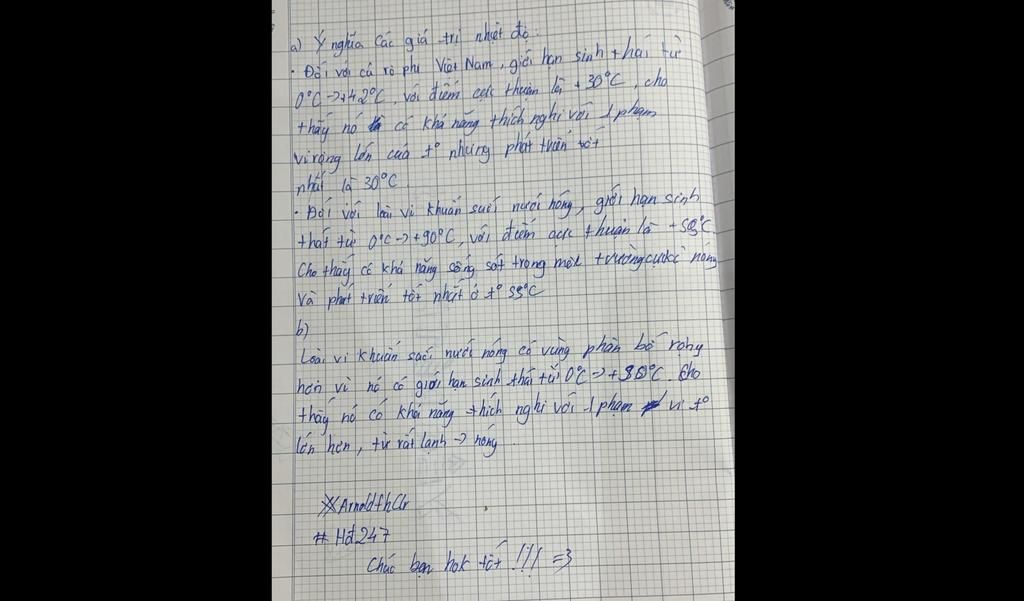 a) Ý nghĩa các giá trị nhiệt độ:
• Đối với cá rô phi Việt Nam, giới hạn sinh thái từ
0°C → +42°C, với điểm cực thuận là +30°C, cho
thấy nó có khả năng thích nghi với 1 phạm
vi rộng lớn của t° nhưng phát triển tốt
nhất là 30°C.
• Đối với loài vi khuẩn suối nước nóng, giới hạn sinh
thái từ 0°C → +90°C, với điểm cực thuận là +55°C.
Cho thấy có khả năng sống sót trong môi trường cực kì nóng
và phát triển tốt nhất ở t° 55°C
b)
Loài vi khuẩn suối nước nóng có vùng phân bố rộng
hơn vì nó có giới hạn sinh thái từ 0°C → +90°C. Cho
thấy nó có khả năng thích nghi với 1 phạm vi t°
lớn hơn, từ rất lạnh → nóng
※ArnoldfhClr
#Hđ247
Chúc bạn hok tốt !!! =3